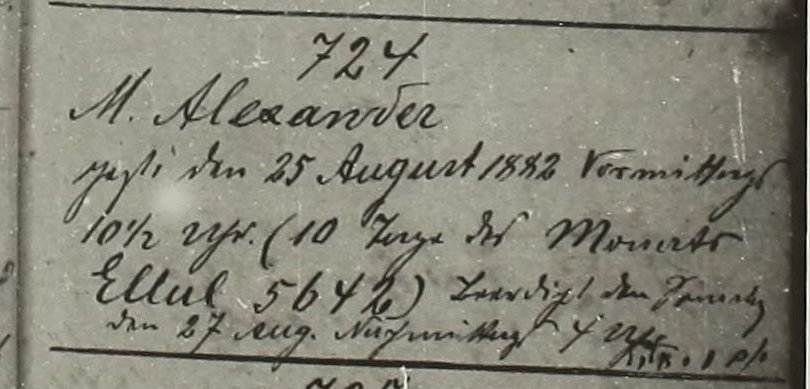 724
M. Alexander
gest: den 25 August 1882 Vormittags
10 1/2 Uhr. (10 Tage des Monats
Ellul 5642) beerdigt den Sonntag
den 27 Aug. Nachmittags 4 Uhr